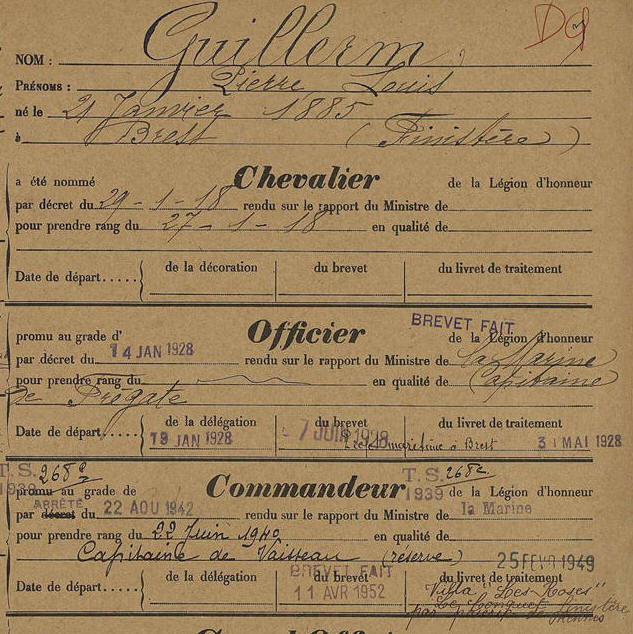 DG
NOM : Guillerm
PRÉNOMS : Pierre Louis
né le 21 Janvier 1885
à Brest (Finistère)
a été nommé Chevalier de la Légion d'honneur
par décret du 29 - 1 - 18 rendu sur le rapport du Ministre de
pour prendre rang du 27 - 1 - 18 en qualité de
Date de départ..... de la décoration du brevet du livret de traitement
BREVET FAIT
promu au grade d' Officier de la Légion d'honneur
par décret du 14 JAN 1928 rendu sur le rapport du Ministre de la Marine
pour prendre rang du en qualité de Capitaine
de Frégate
Date de départ..... de la délégation du brevet du livret de traitement
19 JAN 1928 - 7 JUIN 1928 à Brest 3 MAI 1928
T. S. 268 T. S. 268
1939 1939
promu au grade de Commandeur de la Légion d'honneur
ARRÊTÉ
par décret du 22 AOU 1942 rendu sur le rapport du Ministre de la Marine
pour prendre rang du 22 Juin 1940 en qualité de
Capitaine de Vaisseau (réserve) 25 FEVR 1949
BREVET FAIT
Date de départ..... de la délégation du brevet du livret de traitement
11 AVR 1952 Villa "Les Roses"